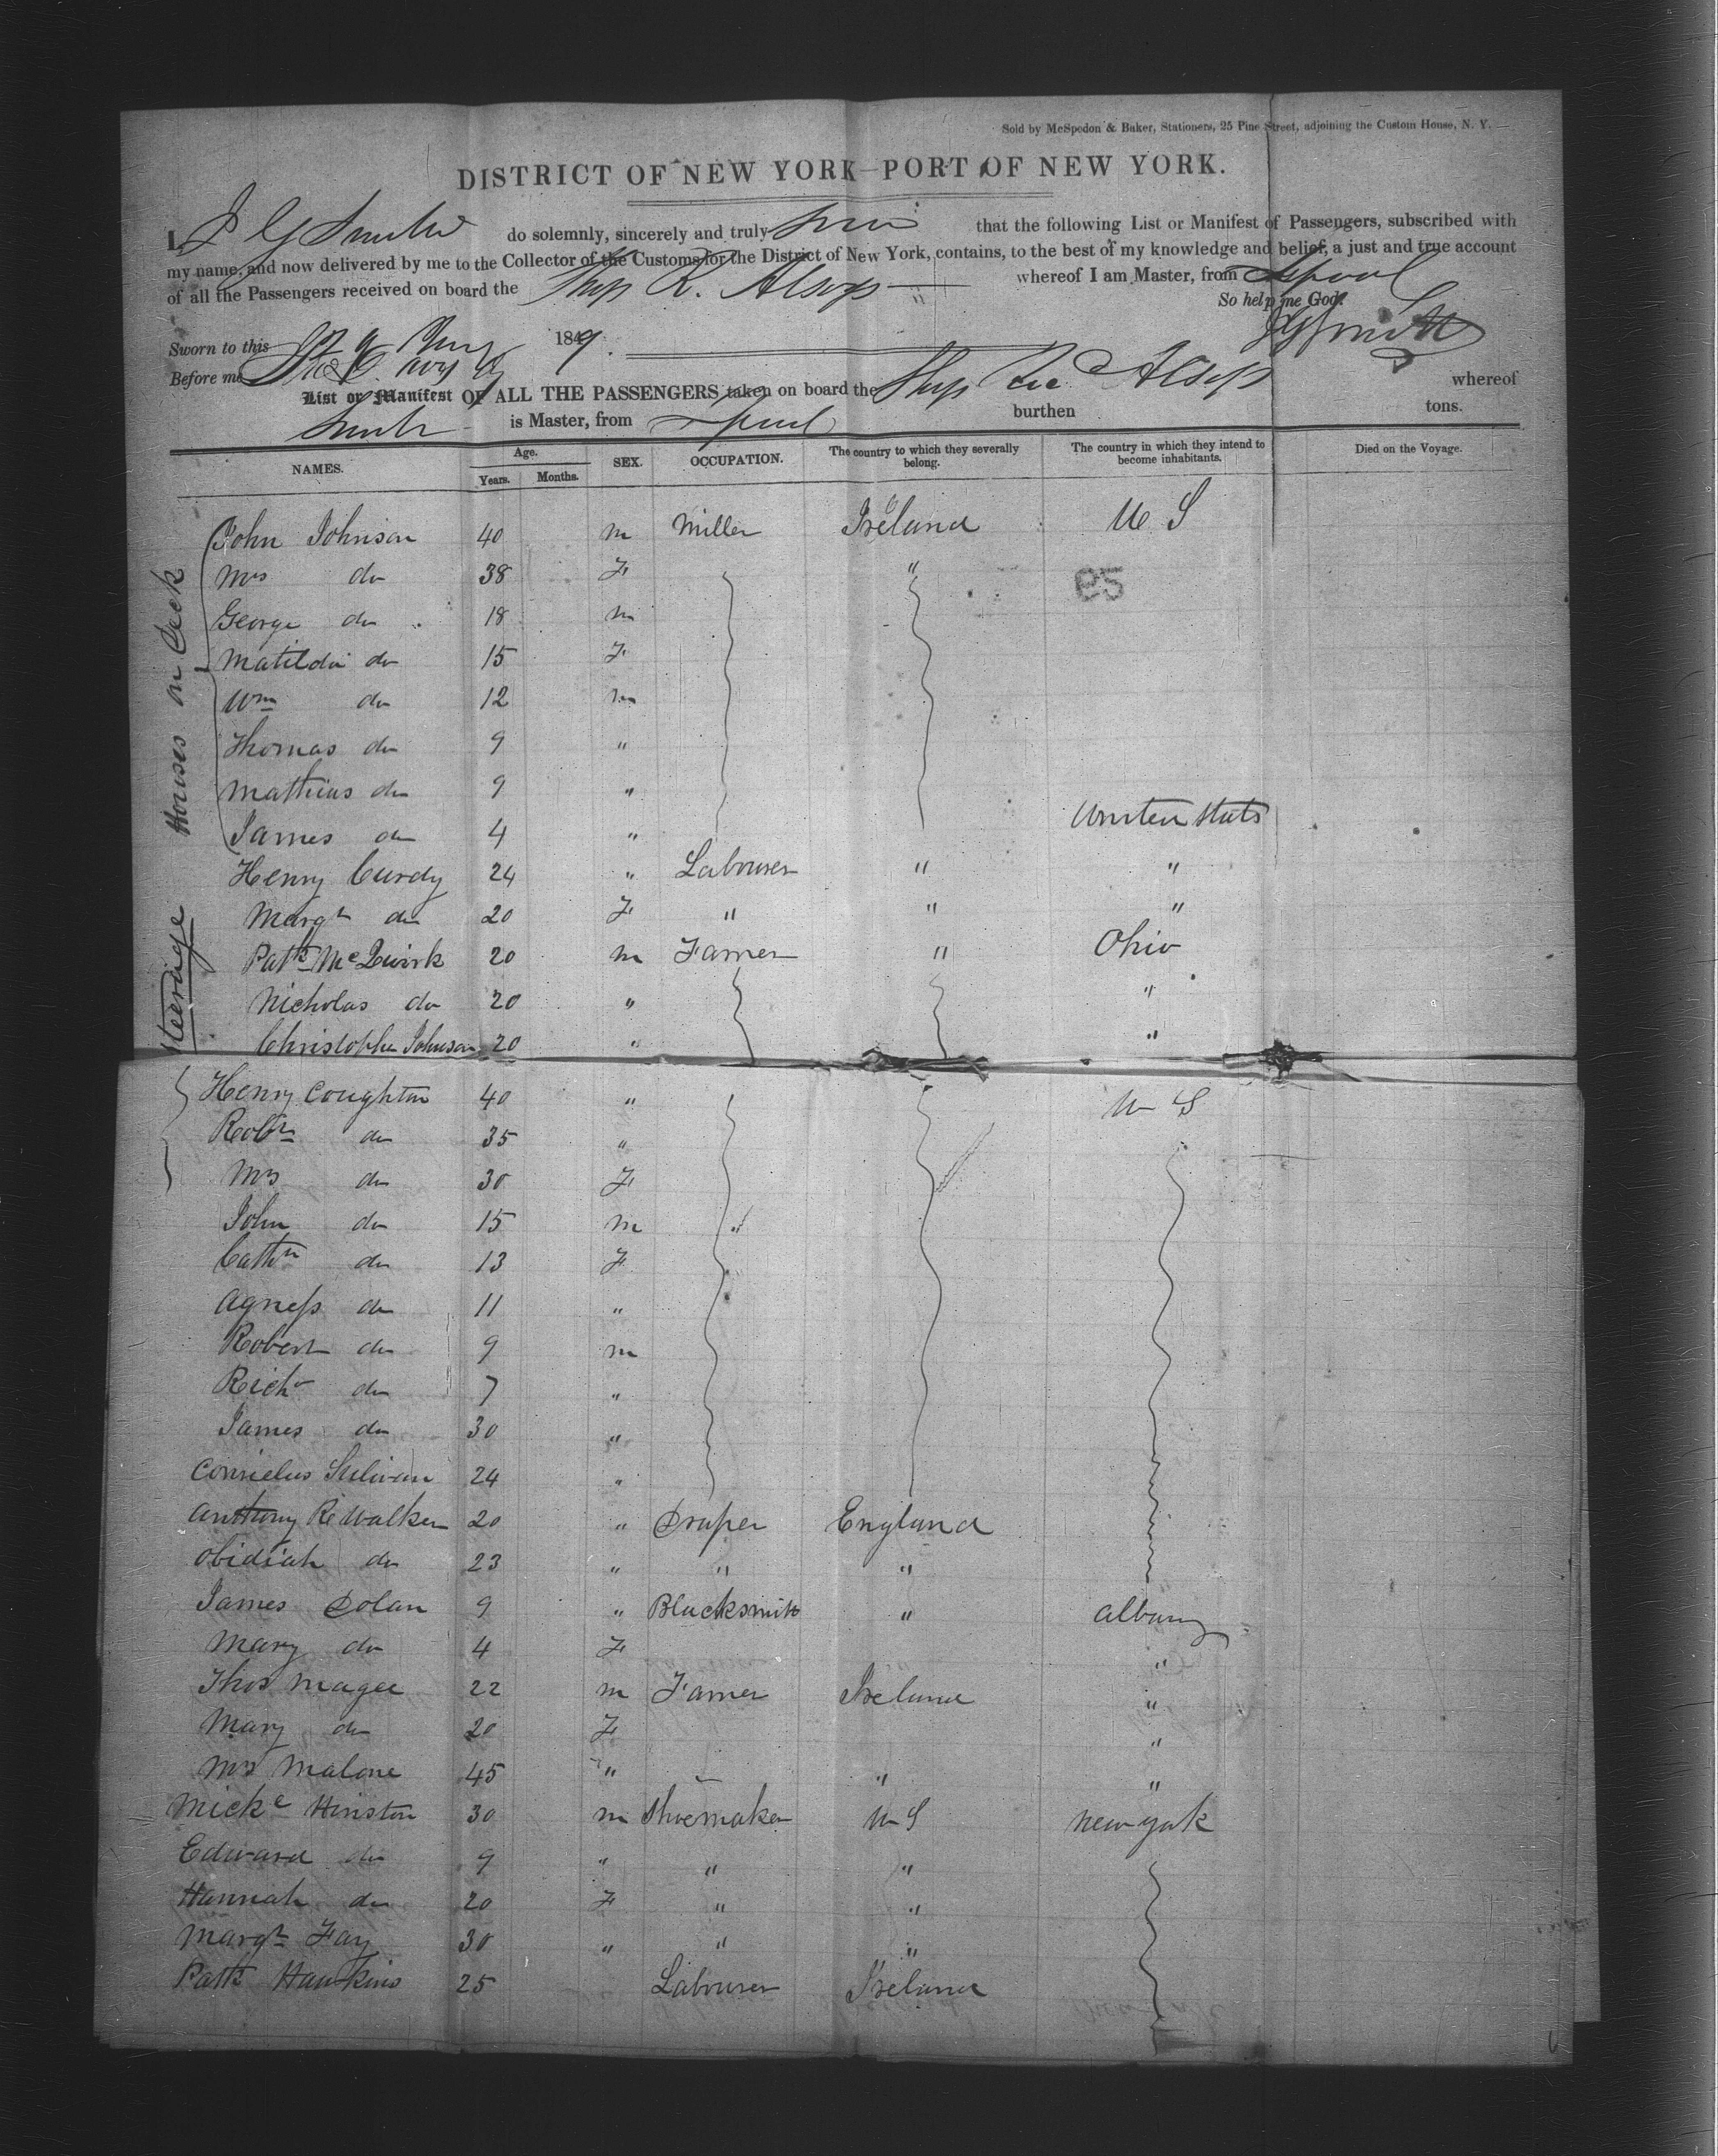 Sold by McSpedon & Baker, Stationers, 25 Pine Street, adjoining the Custom House, N. Y.
DISTRICT OF NEW YORK—PORT OF NEW YORK.
I, J G Smith do solemnly, sincerely and truly that the following List or Manifest of Passengers, subscribed with
my name, and now delivered by me to the Collector of the Customs for the District of New York, contains, to the best of my knowledge and belief, a just and true account
of all the Passengers received on board the Ship R. Alsop whereof I am Master, from Lpool
So help me God.
J G Smith
Sworn to this 1849.
Before me
List or Manifest OF ALL THE PASSENGERS taken on board the Ship Alsop whereof
Smith is Master, from Lpool burthen tons.
NAMES. Age. Years. Months. SEX. OCCUPATION. The country to which they severally belong. The country in which they intend to become inhabitants. Died on the Voyage.
Houses on Deck
John Johnson 40 m Miller Ireland U S
Mrs do 38 F "
95
George do 18 m
Matilda do 15 F
Wm do 12 m
Thomas do 9 "
Mathias do 9 "
James do 4 " United Stats
Steerage
Henry Curdy 24 " Labourer " "
Margt do 20 F " " "
Patk McQuirk 20 m Farmer " Ohio
Nicholas do 20 " "
Christopher Johnson 20 " "
Henry Coughton 40 " U S
Robt do 35 "
Mrs do 30 F
John do 15 m "
Cathn do 13 F
Agness do 11 "
Robert do 9 m
Richd do 7 "
James do 30 "
Cornielus Sulivan 24 "
Anthony R Walker 20 " Draper England
Obidiah do 23 " " "
James Dolan 9 " Blacksmith " Albany
Mary do 4 F "
Thos Magee 22 m Farmer Ireland "
Mary do 20 F "
Mrs Malone 45 " " "
Micke Hinston 30 m Shoemaker U S New York
Edward do 9 " " "
Hannah do 20 F " "
Margt Fay 30 " " "
Patk Hawkins 25 Labourer Ireland